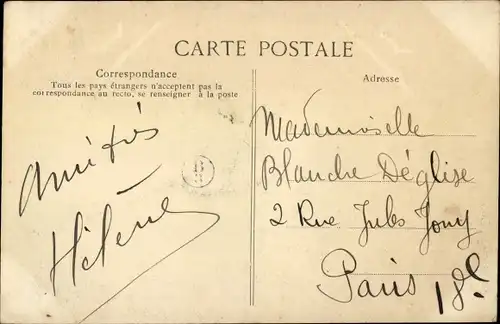 CARTE POSTALE
Correspondance
Tous les pays étrangers n'acceptent pas la
correspondance au recto, se renseigner à la poste
Amitiés
Hélène
B
3
Adresse
Mademoiselle
Blanche Déglise
2 Rue Jules Jouy
Paris 18e